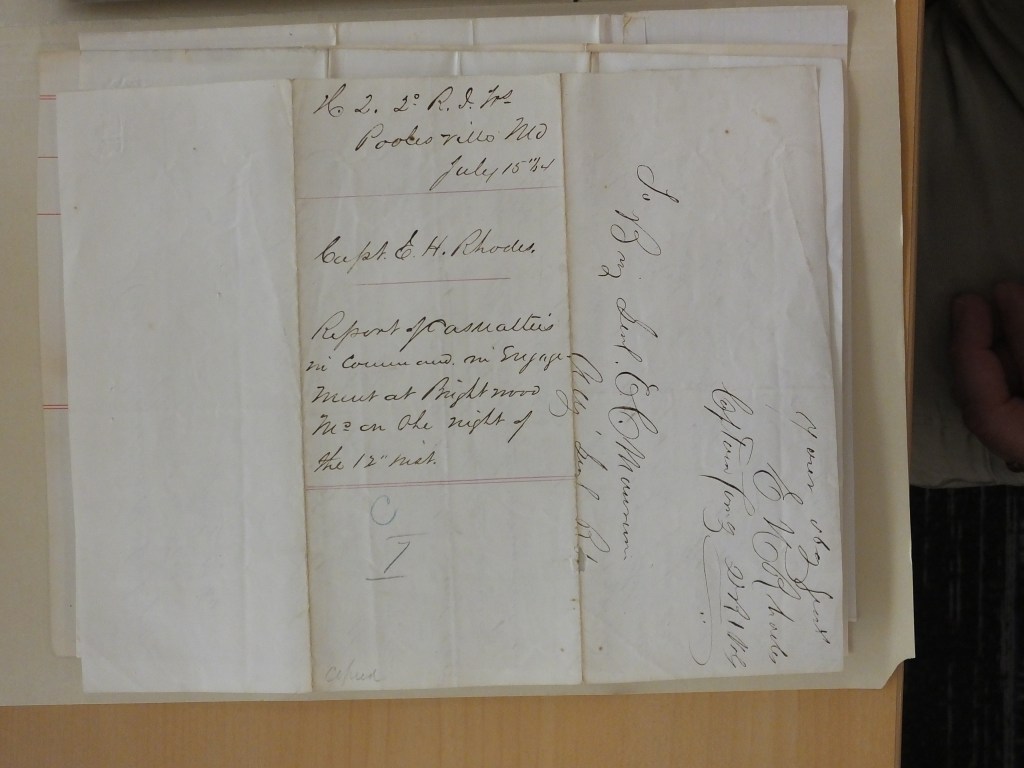 H. Q. 2º R. I. Vs
Poolesville Md
July 15th/64
Capt. E. H. Rhodes.
Report of Casualties
in Command in Engage-
ment at Brightwood
Md on the night of
the 12" inst.
C
copied
Yours oby Servt
E H Rhodes
Captain Comg 2 R I Vols
To Brig Genl. E C Mauran
Adj. Genl R.I.